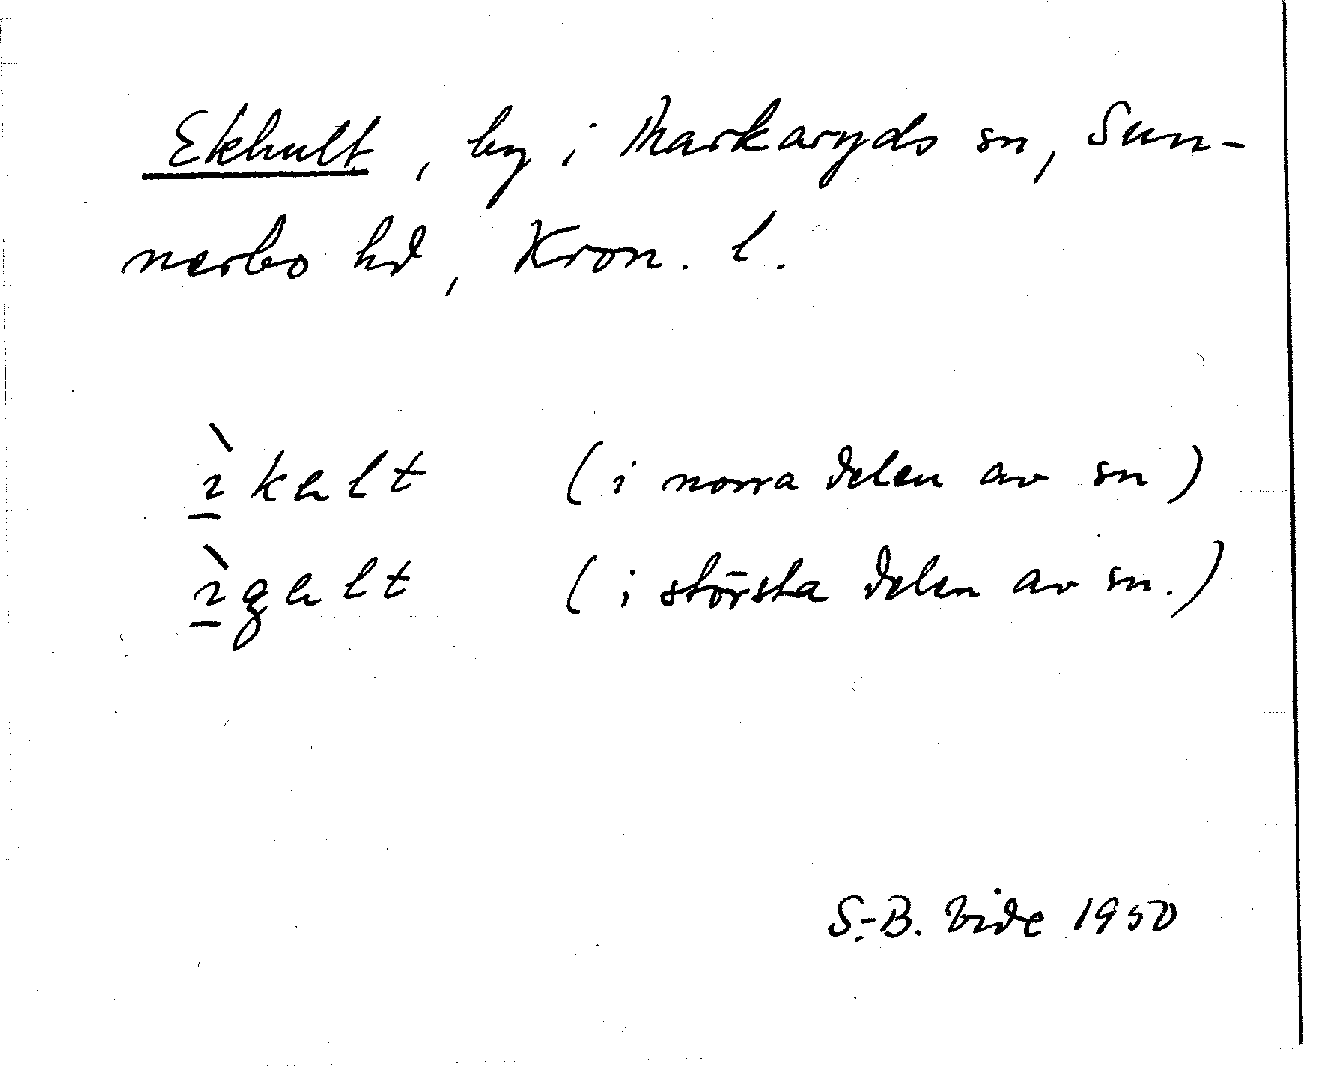 Ekhult, by i Markaryds sn, Sun-
nerbo hd, Kron. l.
ì̱kalt (i norra delen av sn)
ì̱galt (i största delen av sn.)
S.-B. Vide 1950